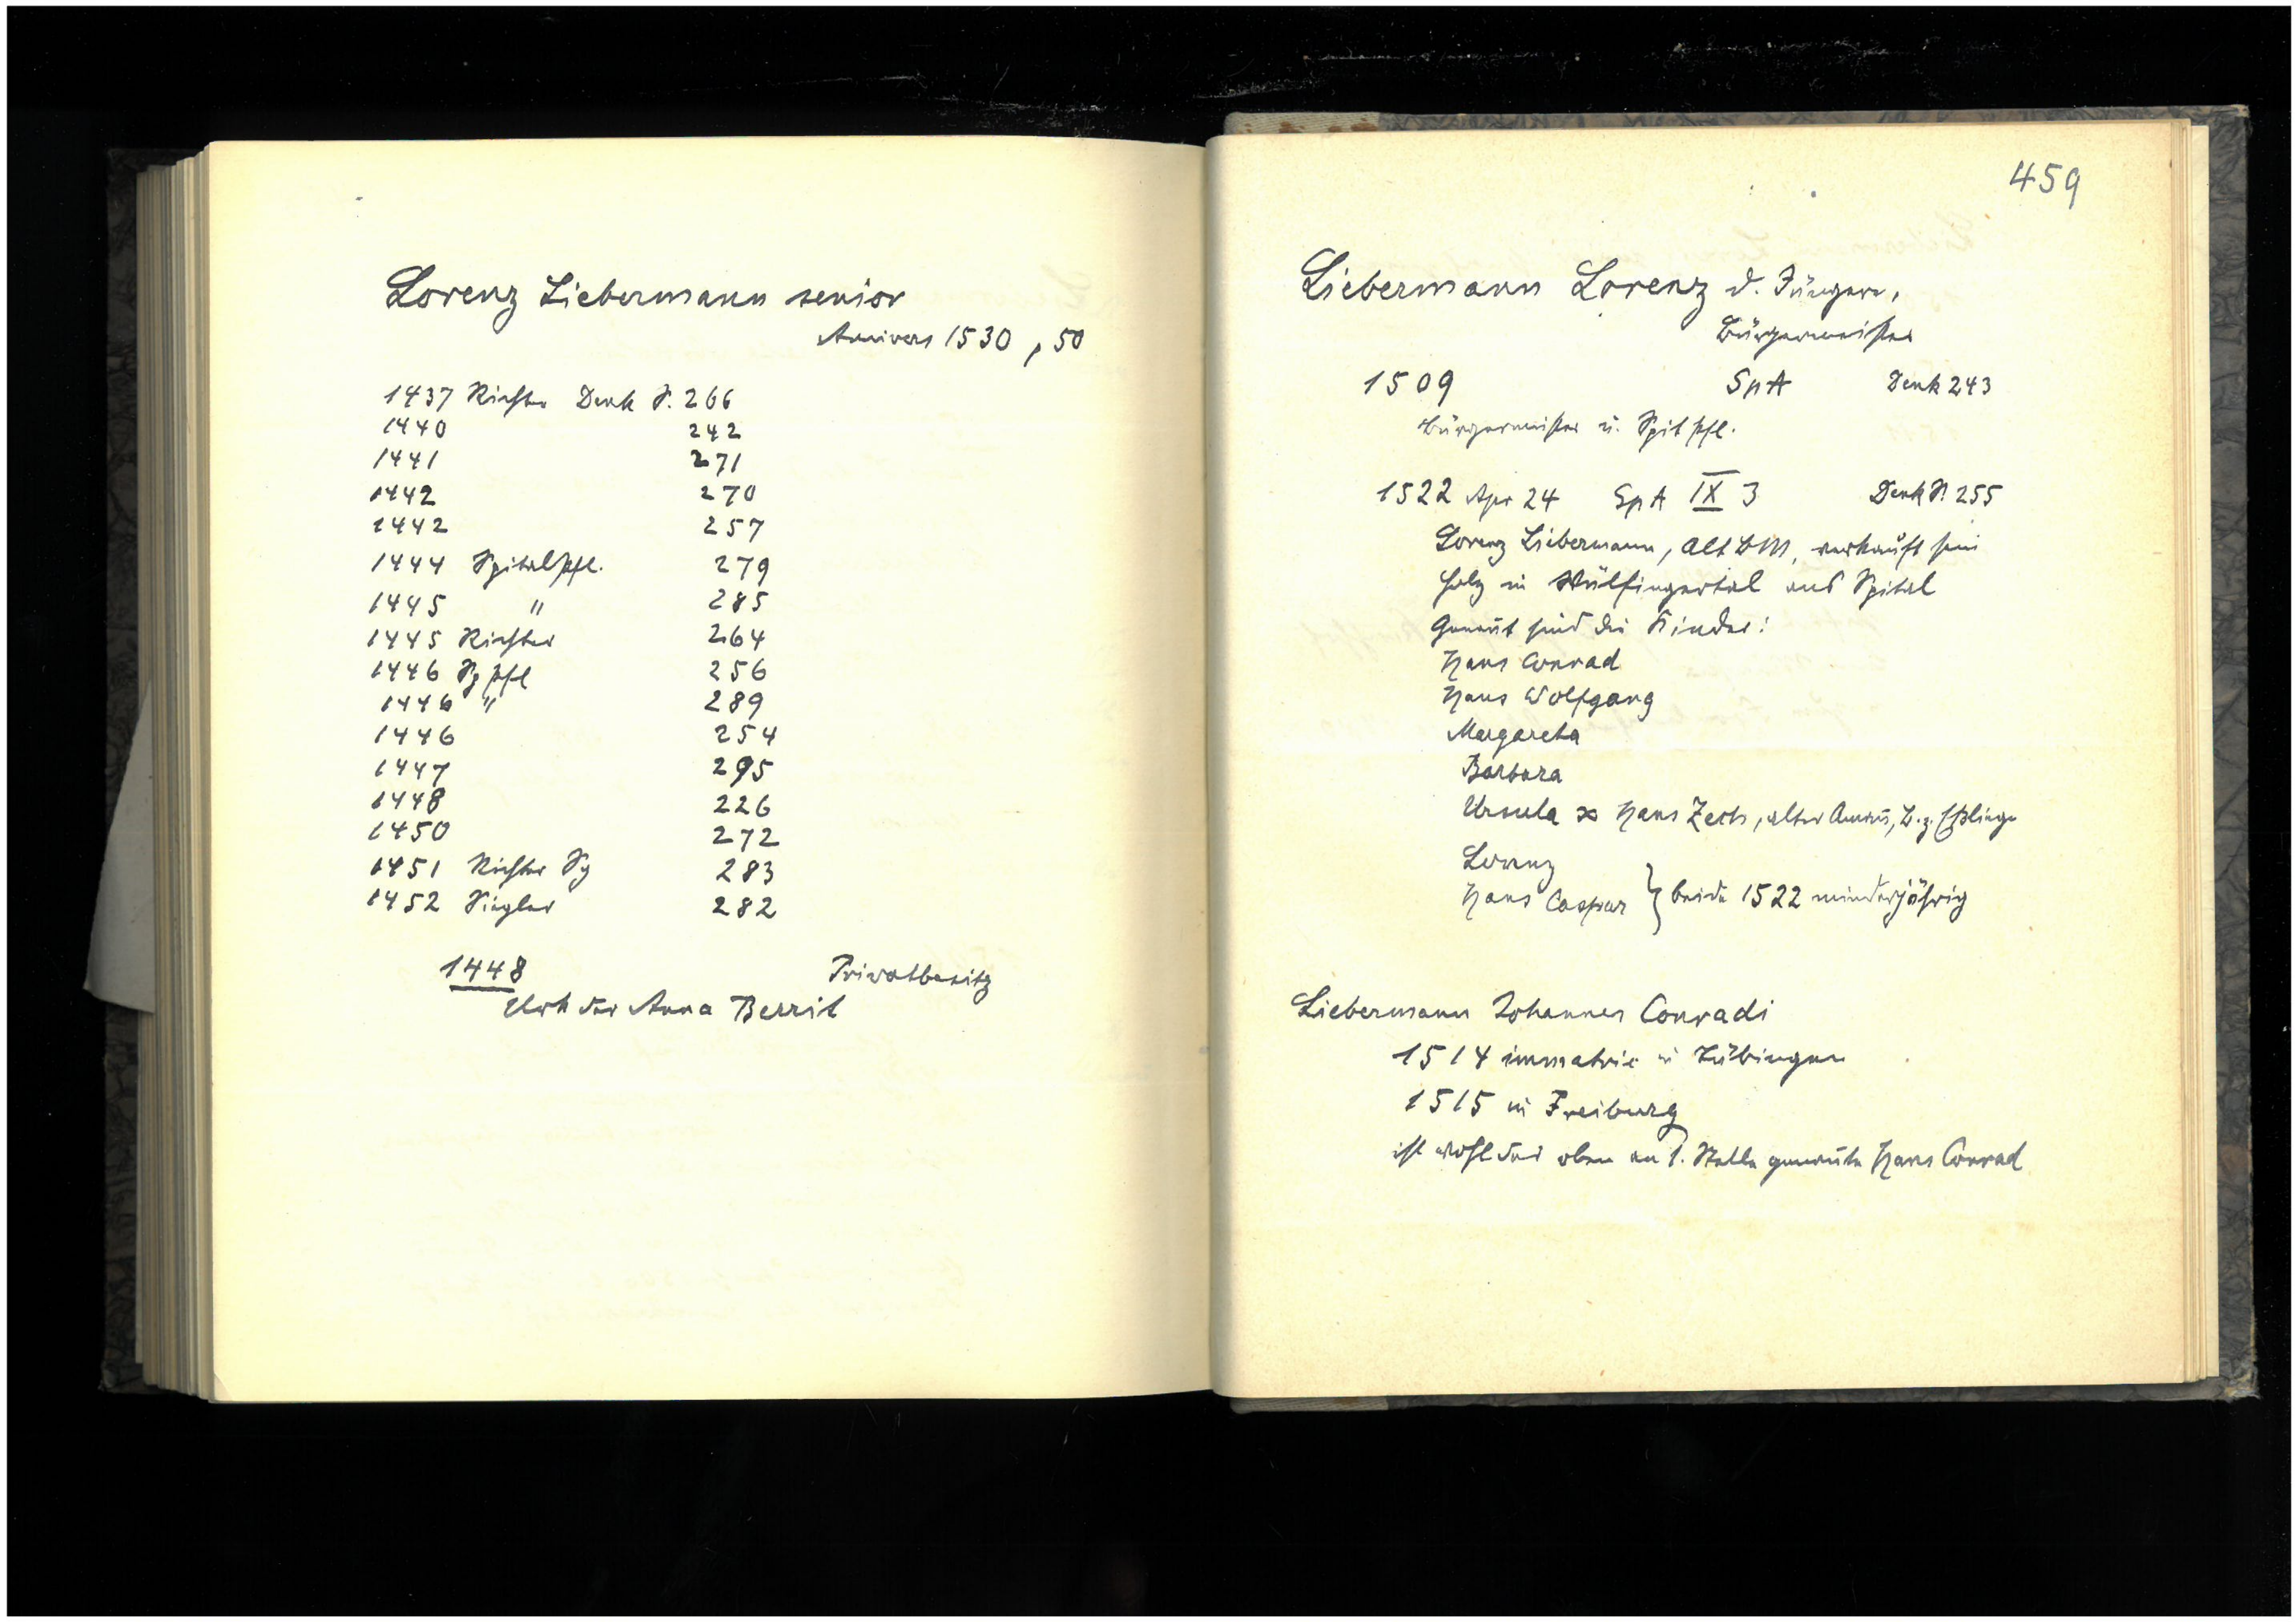 Lorenz Liebermann senior
Annivers 1530, 50
1437 Richter Denk S. 266
1440 242
1441 271
1442 270
1442 257
1444 Spitalpfl. 279
1445 " 285
1445 Richter 264
1446 Sppfl 256
1446 " 289
1446 254
1447 295
1448 226
1450 272
1451 Richter Sp 283
1452 Siegler 282
1448 Privatbesitz
Urk der Anna Berrit
459
Liebermann Lorenz d. Jüngere,
Bürgermeister
1509 SpA Denk 243
Bürgermeister u. Spitpfl.
1522 Apr 24 SpA IX 3 Denk S. 255
Lorenz Liebermann, Alt BM, verkauft sein
Holz in Wülfingertal ans Spital
Genannt sind die Kinder:
Hans Conrad
Hans Wolfgang
Margareta
Barbara
Ursula ∞ Hans Zech, alter, B. z. Eßlingen
Lorenz
Hans Caspar } beide 1522 minderjährig
Liebermann Johannes Conradi
1514 immatric in Tübingen
1515 in Freiburg
ist wohl der oben an 1. Stelle genannte Hans Conrad